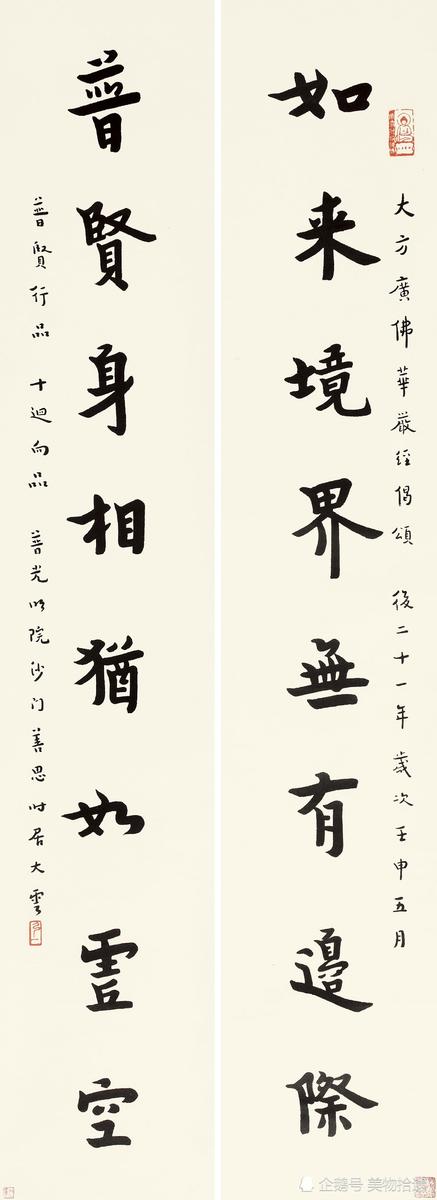 大方廣佛華嚴經偈頌 後二十一年歲次壬申五月
如来境界無有邊際
普賢身相猶如虛空
普賢行品 十迴向品 普光明院沙门善思时居大雲
企鹅号 美物拾